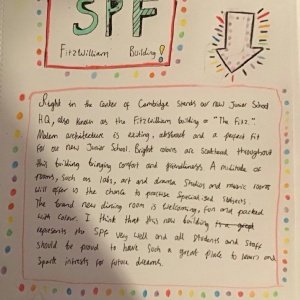 SPF
FitzWilliam Building!
Right in the center of Cambridge stands our new Junior School
HQ, also known as the FitzWilliam building or "The Fitz."
Modern architecture is exiting, abstract and a perfect fit
for our new Junior School. Bright colors are scattered throughout
this building bringing comfort and friendliness. A multitude of
rooms, such as labs, art and drama studios and music rooms
will offer us the chance to practise specialised subjects.
The brand new dining room is welcoming, fun and packed
with colour. I think that this new building is a great
represents the SPF very well and all students and staff
should be proud to have such a great place to learn and
spark intrests for future dreams.